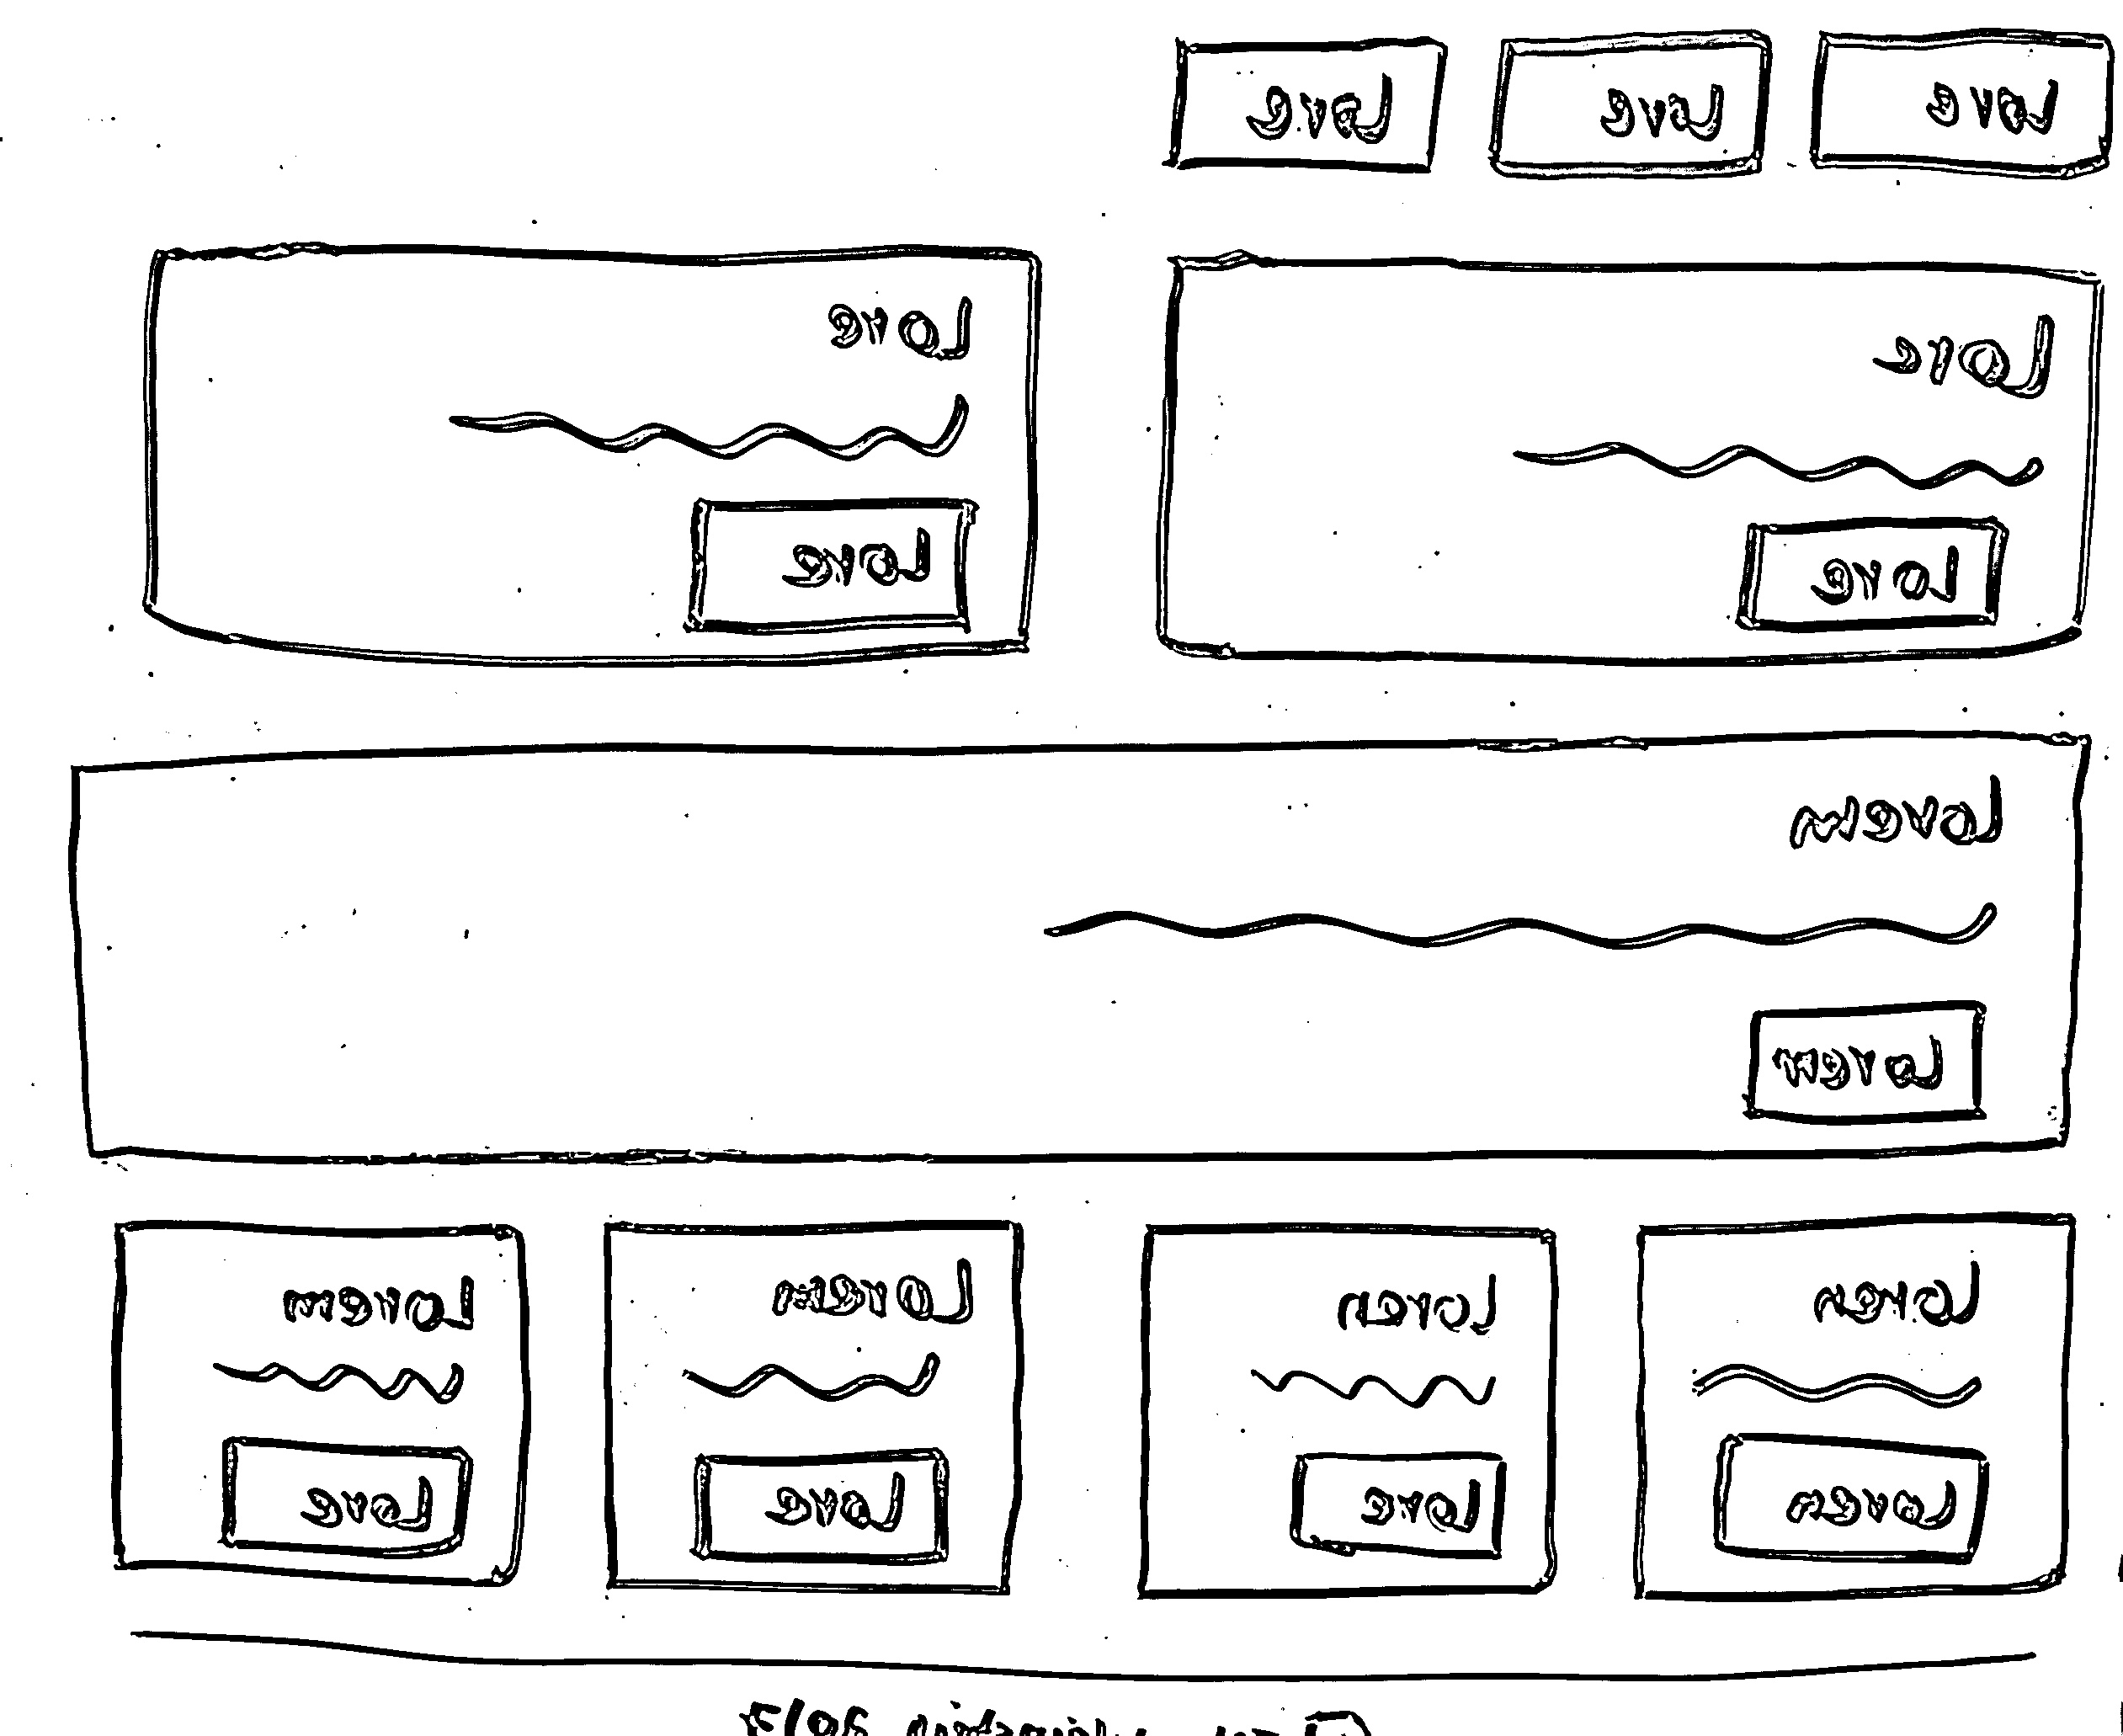 Lore Lore Lore
Lore Lore
Lore Lore
Lorem
Lorem
Loren Loren Lorem Lorem
Loren Lore Lore Lore